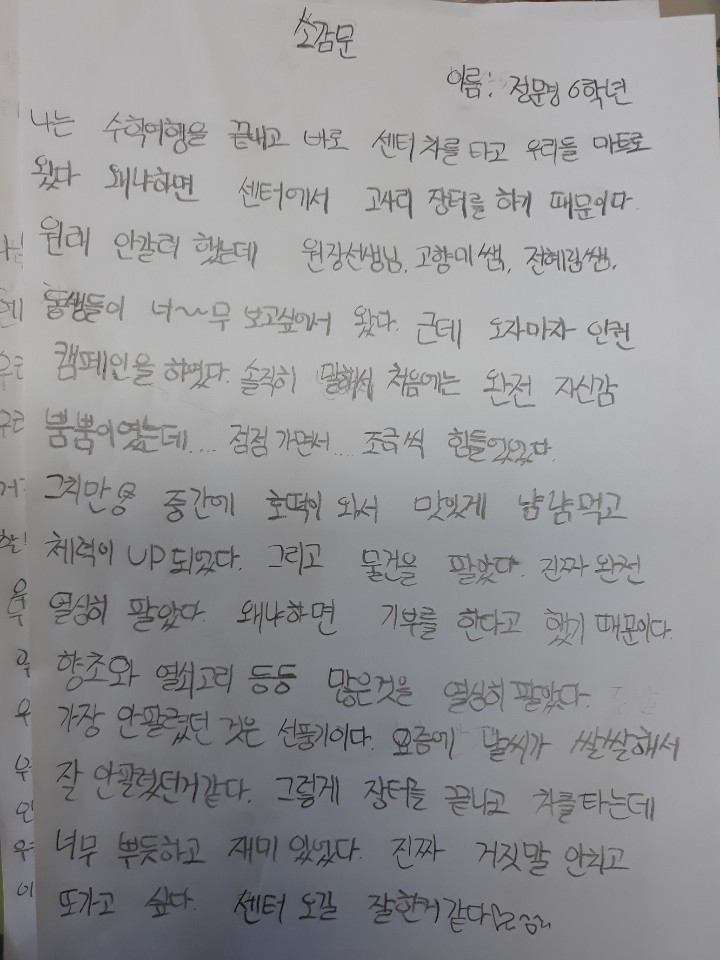 소감문
이름: 정문영 6학년
나는 수학여행을 끝내고 바로 센터차를 타고 우리들 마트로
왔다 왜냐하면 센터에서 고사리 장터를 하기 때문이다.
원래 안갈려 했는데 원장선생님, 고향미쌤, 전혜림쌤,
동생들이 너~~무 보고싶에서 왔다. 근데 오자마자 인권
캠페인을 하였다. 솔직히 말해서 처음에는 완전 자신감
뿜뿜이였는데.... 점점 가면서.... 조금씩 힘들었었다.
그치만 중간에 호떡이 와서 맛있게 냠냠먹고
체력이 UP되었다. 그리고 물건을 팔았다. 진짜 완전
열심히 팔았다. 왜냐하면 기부를 한다고 했기 때문이다.
향초와 열쇠고리 등등 많은것을 열심히 팔았다.
가장 안팔렸던 것은 선풍기이다. 요즘에 날씨가 쌀쌀해서
잘 안팔렸던거같다. 그렇게 장터를 끝나고 차를타는데
너무 뿌듯하고 재미 있었다. 진짜 거짓말 안치고
또가고 싶다. 센터 오길 잘한거 같다